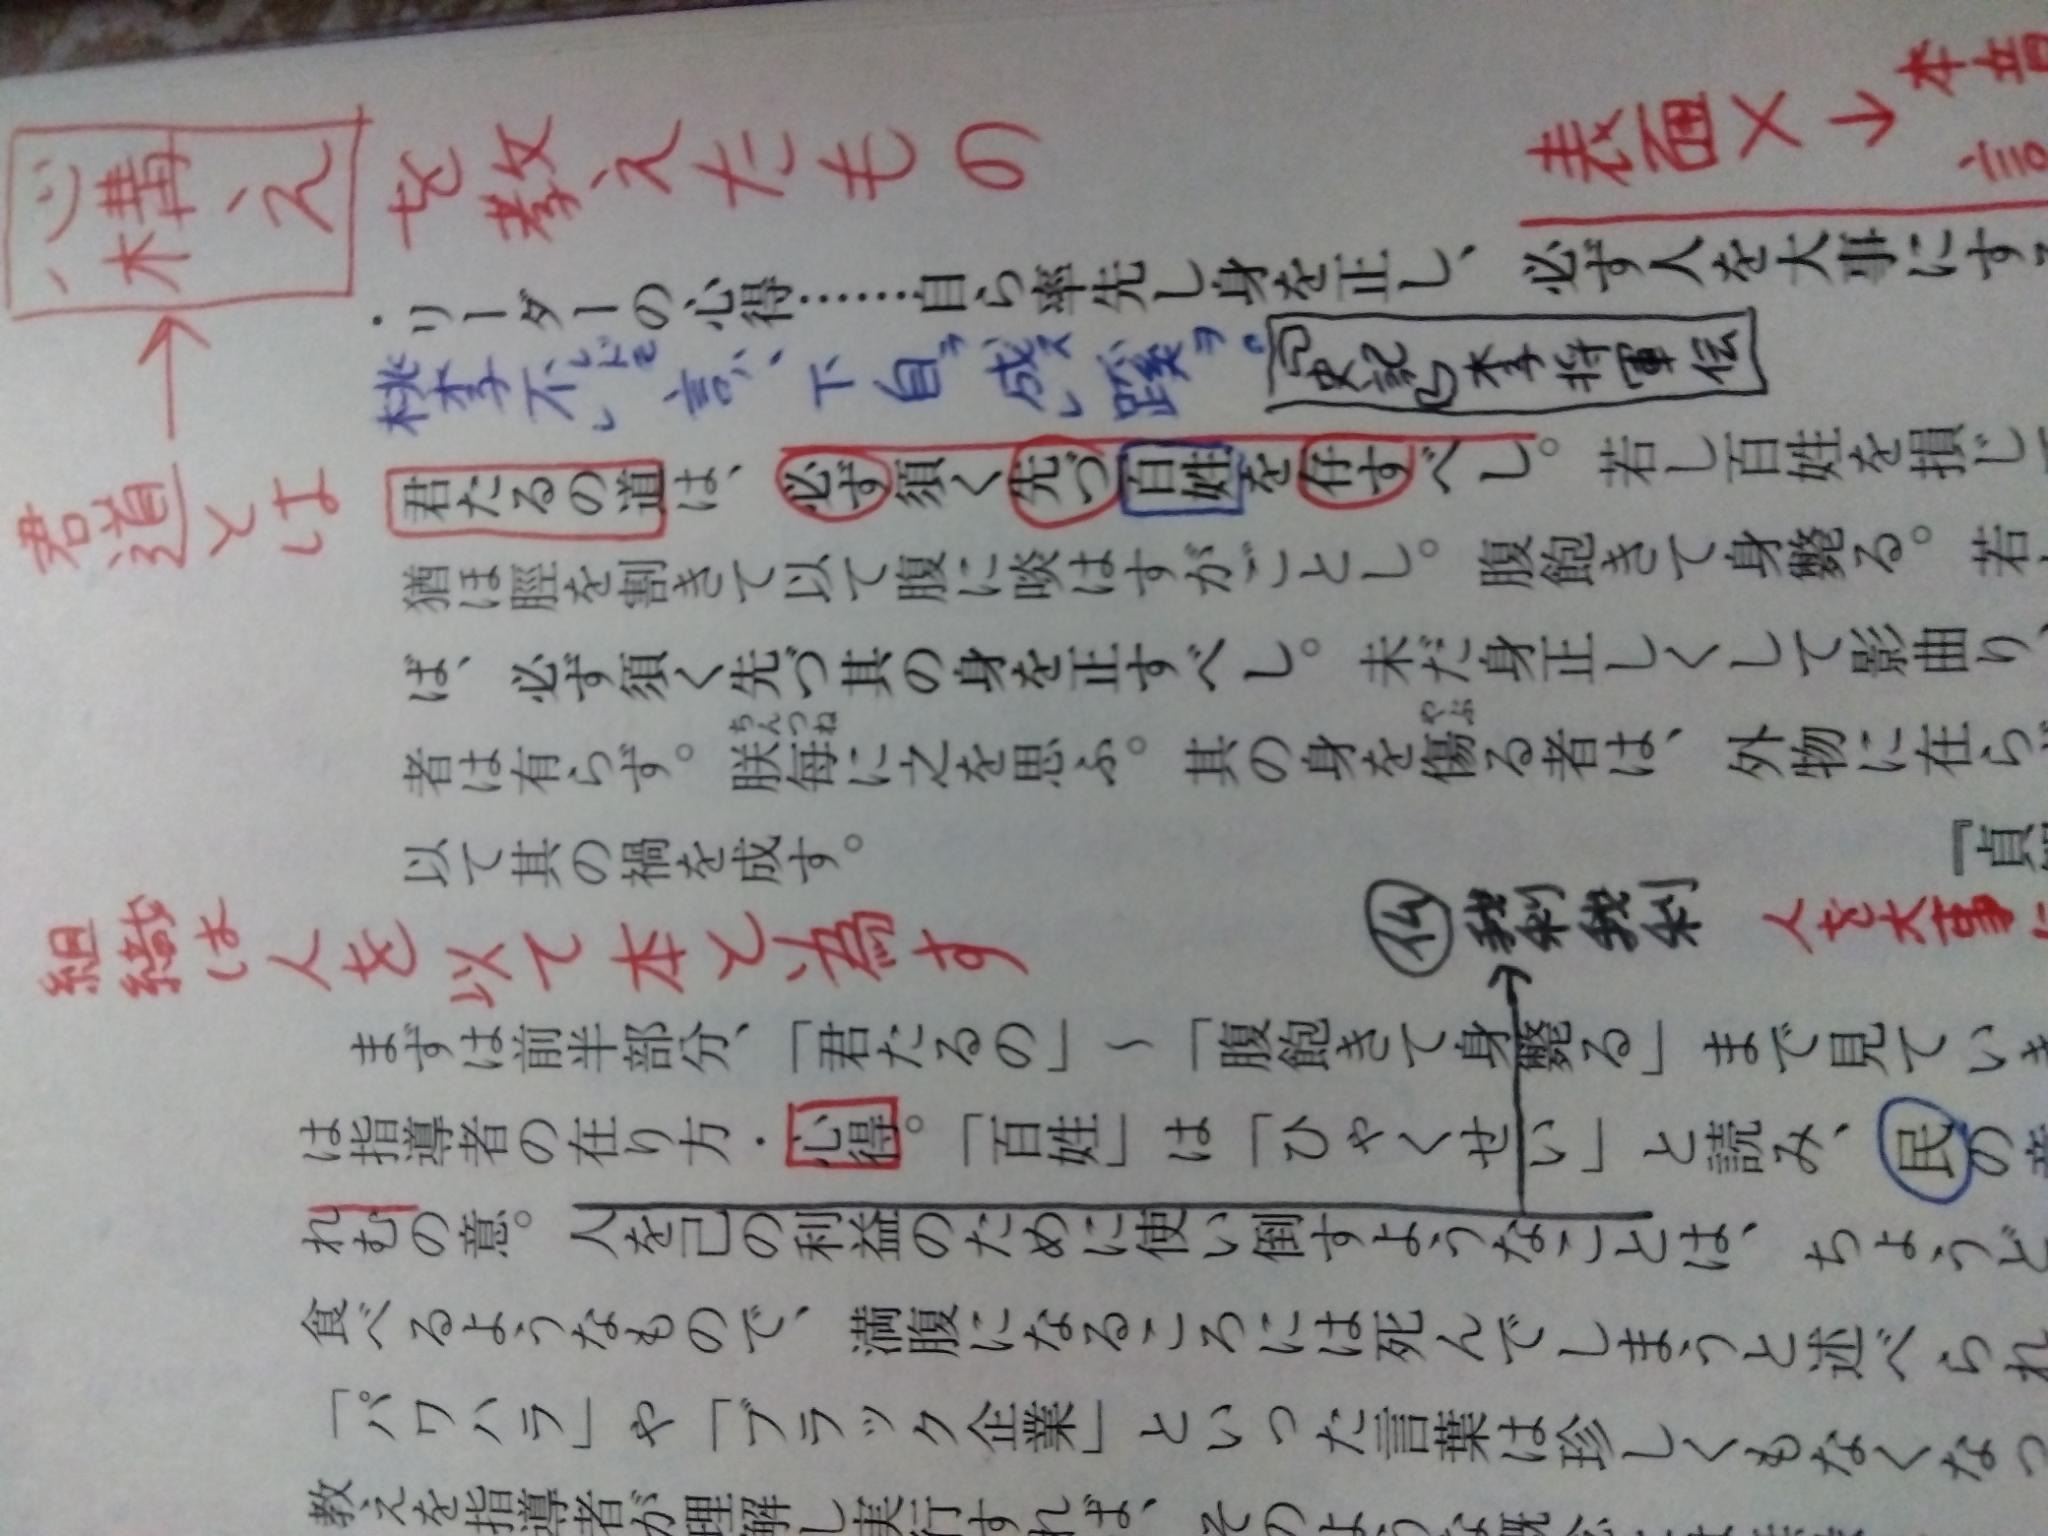 心構えを教えたもの
表面×→本音
言
・リーダーの心得……自ら率先し身を正し、必ず人を大事にす
桃李不レドモ言ハ、下自ラ成スレ蹊ヲ。
『史記』李将軍伝
君道とは→
君たるの道は、必ず須く先づ百姓を存すべし。若し百姓を損じて
猶ほ脛を割きて以て腹に啖はすがごとし。腹飽きて身斃る。若
ば、必ず須く先づ其の身を正すべし。未だ身正しくして影曲り、
者は有らず。朕毎に之を思ふ。其の身を傷る者は、外物に在ら
ちんつね
やぶ
以て其の禍を成す。
『貞
組織は人を以て本と為す
仏 我利我利
人を大事に
まずは前半部分、「君たるの」～「腹飽きて身斃る」まで見ていき
は指導者の在り方・心得。「百姓」は「ひやくせい」と読み、民の
れむの意。人を己の利益のために使い倒すようなことは、ちょうど
食べるようなもので、満腹になるころには死んでしまうと述べられ
「パワハラ」や「ブラック企業」といった言葉は珍しくもなくなっ
教えを指導者が理解し実行すれば、そのような